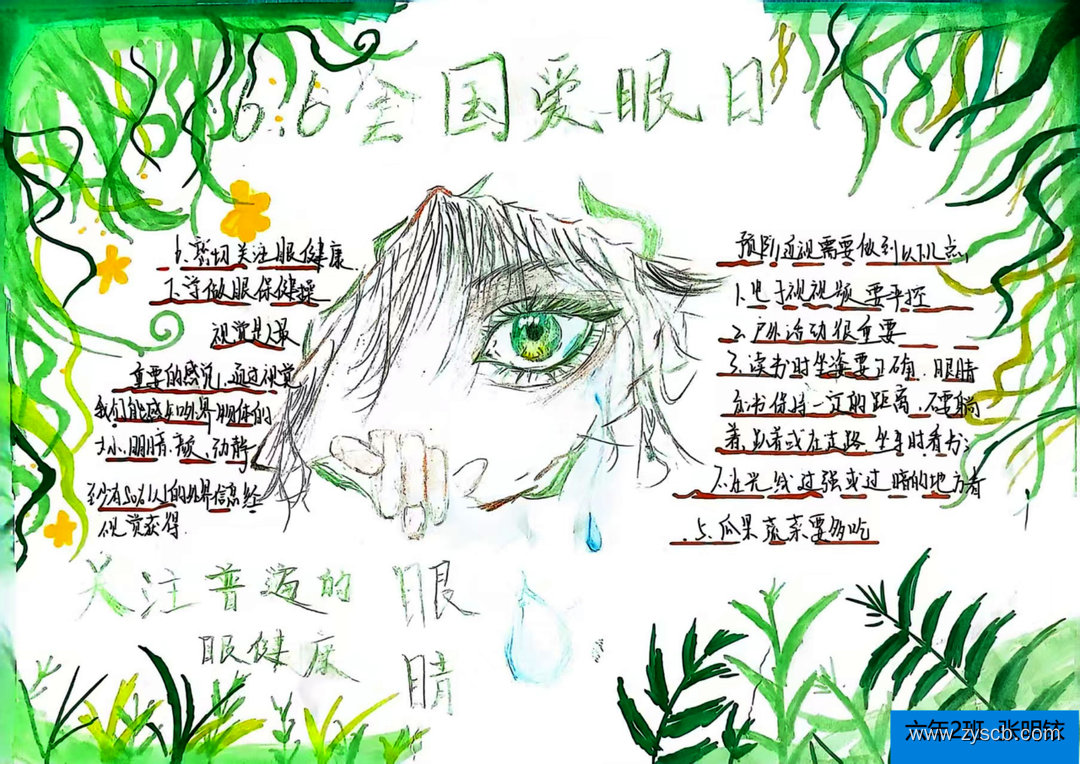 6.6全国爱眼日
6.密切关注眼健康
7.字做眼保健操
视觉是人最
重要的感觉，通过视觉
我们能感知外界物体的
大小、明暗、颜、动静
至少有80%以上的外界信息经
视觉获得.
关注普遍的
眼健康
眼
睛
预防近视需要做到以下几点
1.电子视视频要平控
2.户外活动很重要
3.读书时坐姿要正确，眼睛
与书保持一定的距离，不要躺
着、趴着或在走路、坐车时看书;
不在光线过强或过暗的地方看
5.瓜果蔬菜要多吃
六年2班 张明铱
www.zyscb.com